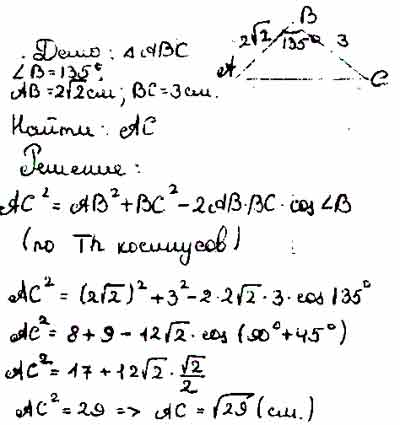 Дано: △ABC
∠B=135°,
AB=2√2см; BC=3см.
Найти: AC
Решение:
AC² = AB²+BC²-2AB·BC·cos∠B
(по Th косинусов)
AC² = (2√2)²+3²-2·2√2·3·cos135°
AC² = 8+9-12√2·cos(90°+45°)
AC² = 17+12√2·√2/2
AC² = 29 => AC=√29(см.)
B
2√2 135° 3
A
C